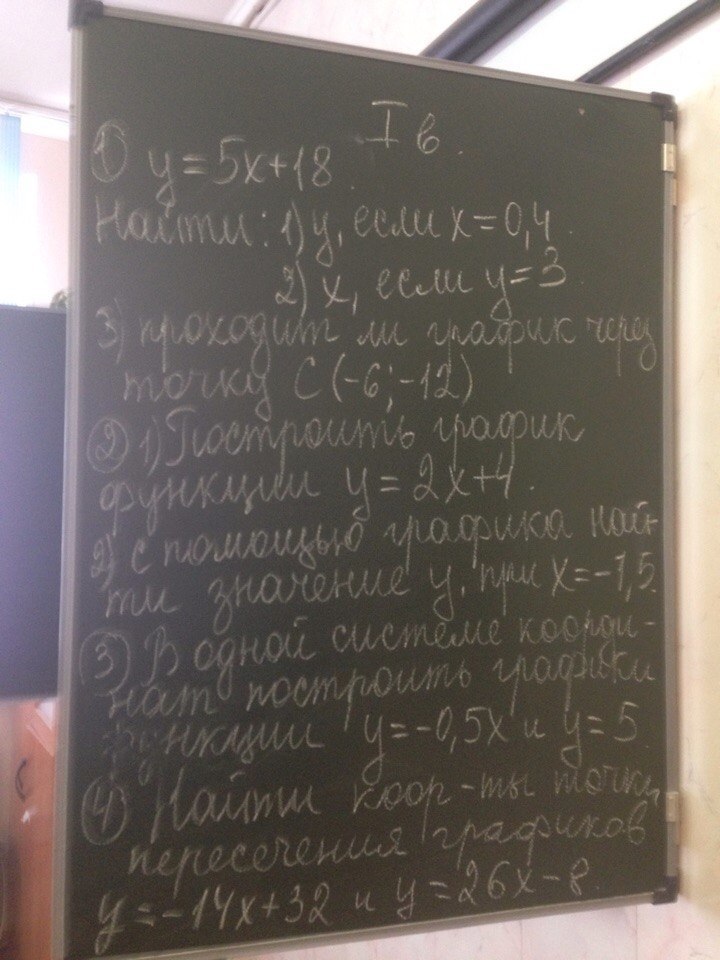 I в.
1) y=5x+18.
Найти: 1) y, если x=0,4.
2) x, если y=3.
3) проходит ли график через
точку C (-6; -12)
2) 1) Построить график
функции y=2x+4.
2) с помощью графика най-
ти значение y, при x=-1,5.
3) В одной системе коорди-
нат построить графики
функции y=-0,5x и y=5.
4) Найти коор-ты точки
пересечения графиков
y=-14x+32 и y=26x-8.